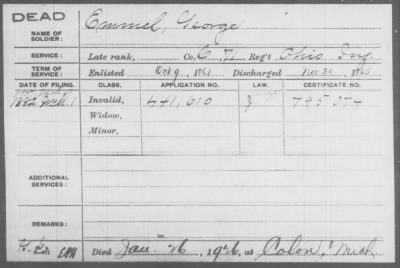 DEAD
NAME OF SOLDIER: Emmel, George
SERVICE: Late rank, Co. C, 71 Reg't Ohio Inf.
TERM OF SERVICE: Enlisted Oct 9, 1861 Discharged Nov. 30, 1865
DATE OF FILING. CLASS. APPLICATION NO. LAW. CERTIFICATE NO.
1882 Invalid, 441,610 795,374
Widow,
Minor,
ADDITIONAL SERVICES:
REMARKS:
Died Jan. 26, 1926, at Colon, Mich